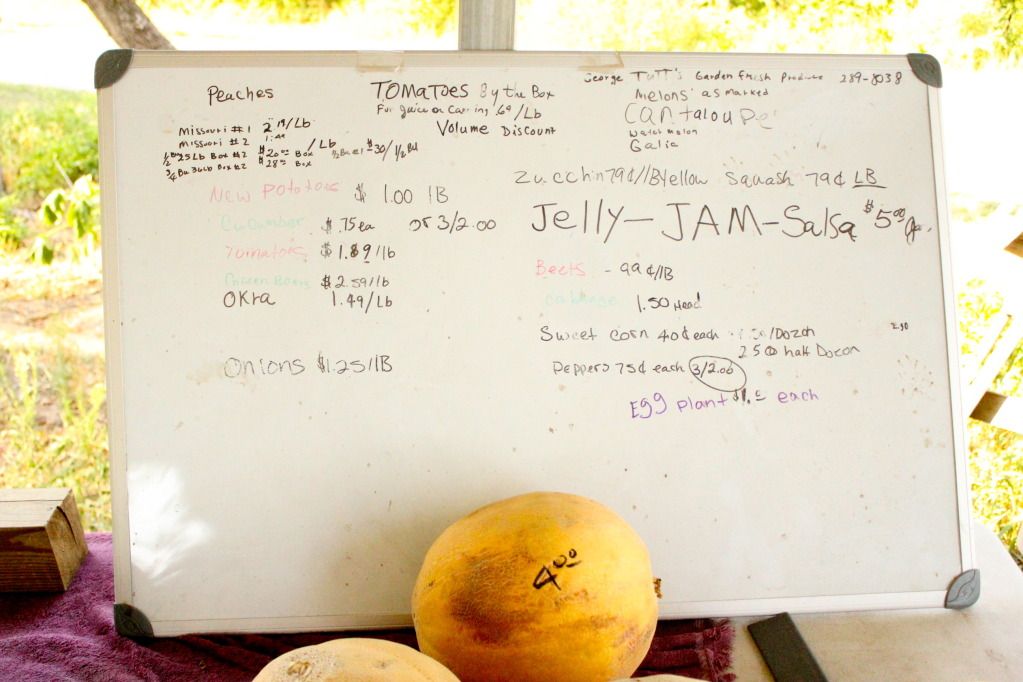 George Tutt's Garden fresh Produce 289-8038
Peaches
TOMATOES By the Box
For Juice or Canning 69/Lb
Volume Discount
Melons as marked
Cantaloupe
Water melon
Galia
Missouri #1 2.19/Lb
Missouri #2 1.49 /Lb
1/2 Bu 25Lb Box #2 $20.00 Box 1/2 Bu #1 $30/ 1/2 Bu
3/4 Bu 36Lb Box #2 $28.00 Box
New Pototoes $ 1.00 lB
Cucumber $ .75ea or 3/2.00
Tomatoes $ 1.89/lb
$ 2.59/lb
OKra 1.49/Lb
Onions $1.25/lB
Zucchini 79¢/lB Yellow Squash 79¢ LB
Jelly-JAM-Salsa $5.00
Beets - 99¢/lB
Cabbage 1.50 Head
Sweet Corn 40¢ each /Dozen
2.50 half Dozen
Peppers 75¢ each 3/2.00
Egg plant $1.00 each
4.00